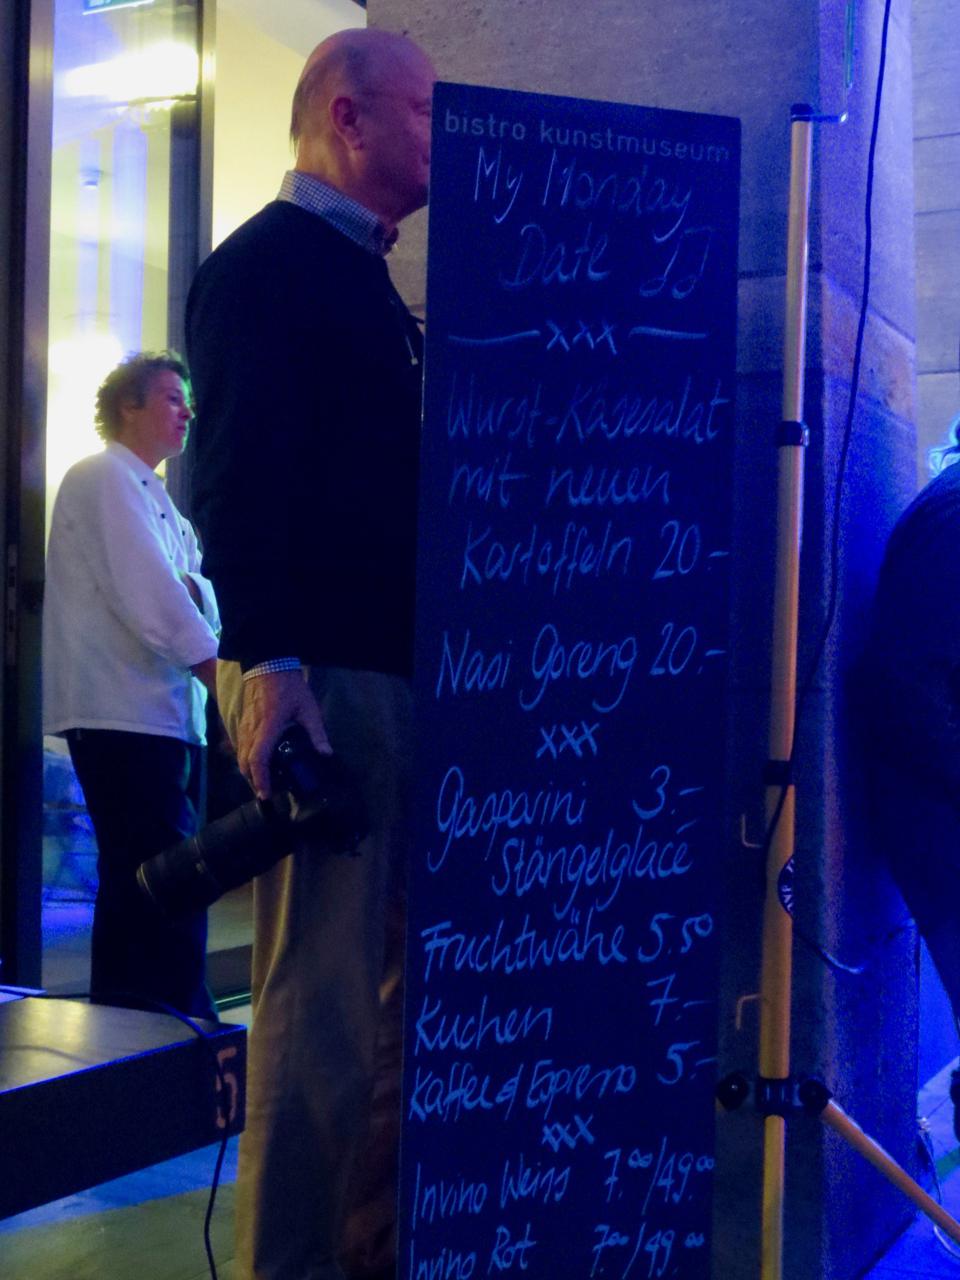 bistro kunstmuseum
My Monday
Date ♫
xxx
Wurst-Käsesalat
mit neuen
Kartoffeln 20.-
Nasi Goreng 20.-
xxx
Gasparini 3.-
Stängelglacé
Fruchtwähe 5.50
Kuchen 7.-
Kaffee & Espresso 5.-
xxx
Invino Weiss 7.00/49.00
Invino Rot 7.00/49.00
5